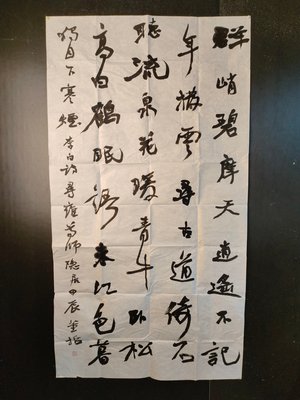 群峭碧摩天逍遙不記
年撥雲尋古道倚石
聽流泉花暖青牛卧松
高白鶴眠語来江色暮
獨自下寒煙李白詩尋雍尊師隱居甲辰